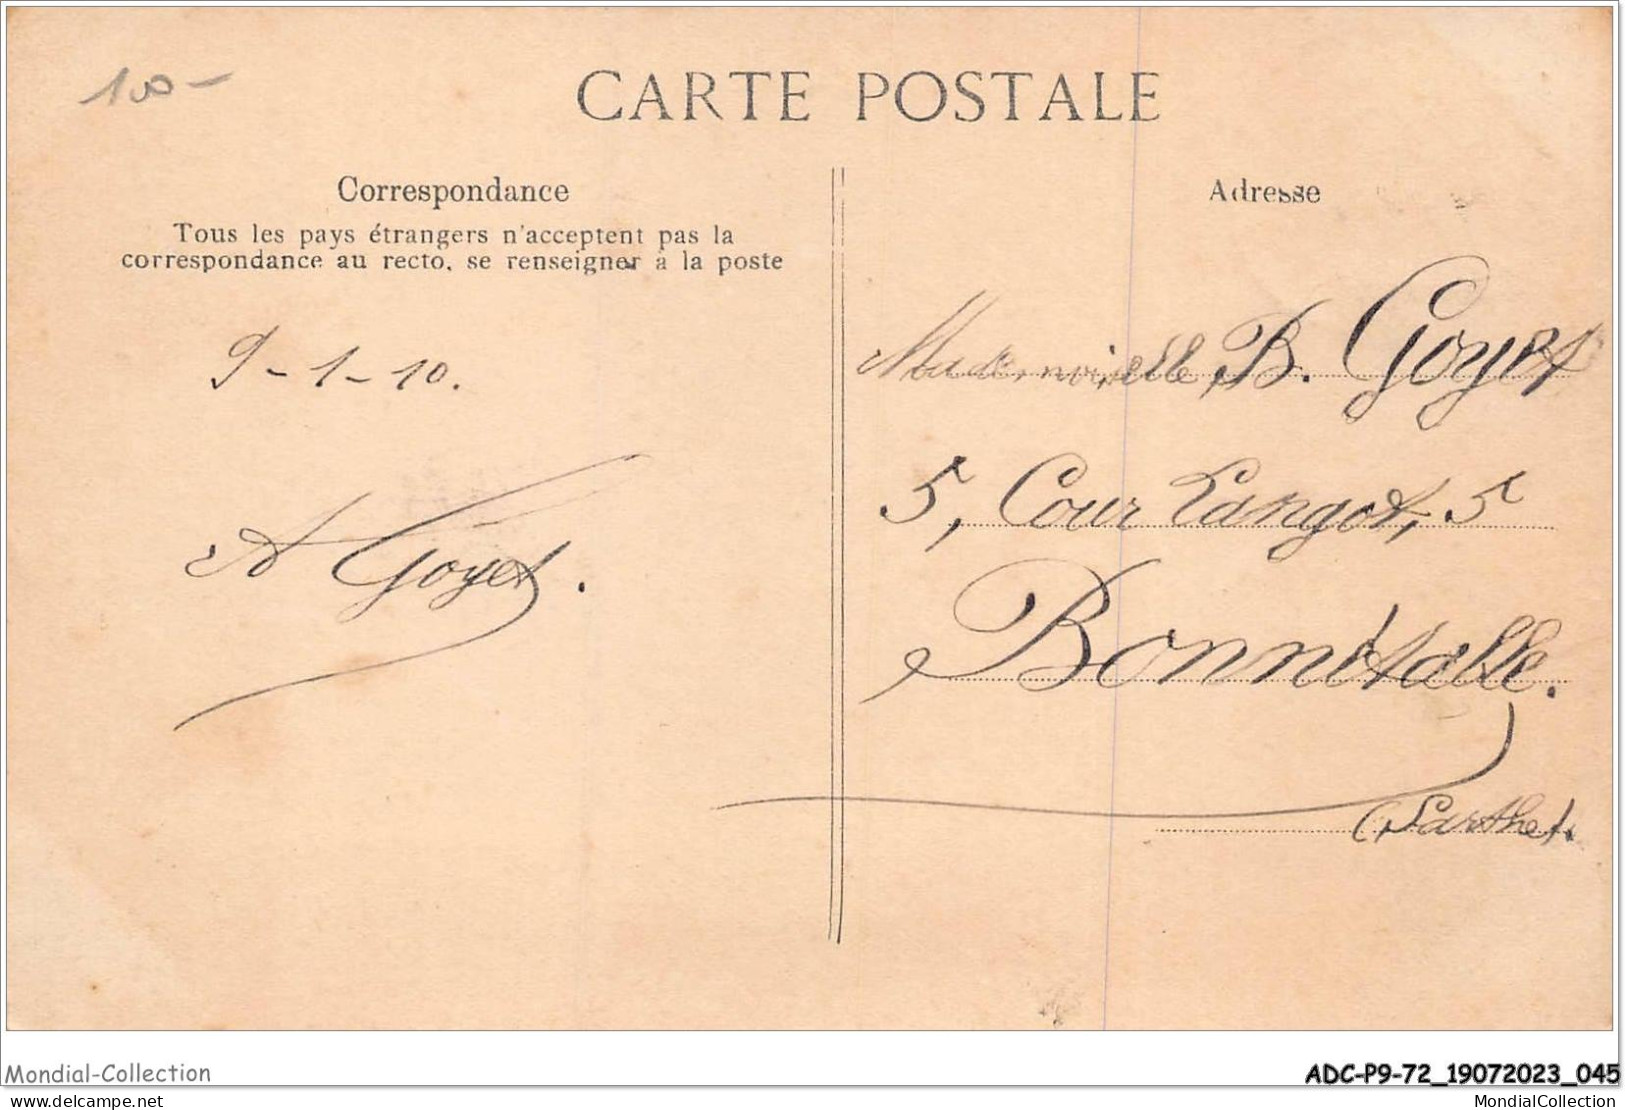 100-
CARTE POSTALE
Correspondance
Tous les pays étrangers n'acceptent pas la
correspondance au recto, se renseigner à la poste
9-1-10.
A Goyet.
Adresse
Mademoiselle B. Goyet
5, Cour Langot, 5
Bonnétable.
(Sarthe).
Mondial-Collection
ADC-P9-72_19072023_045
delcampe.net
MondialCollection